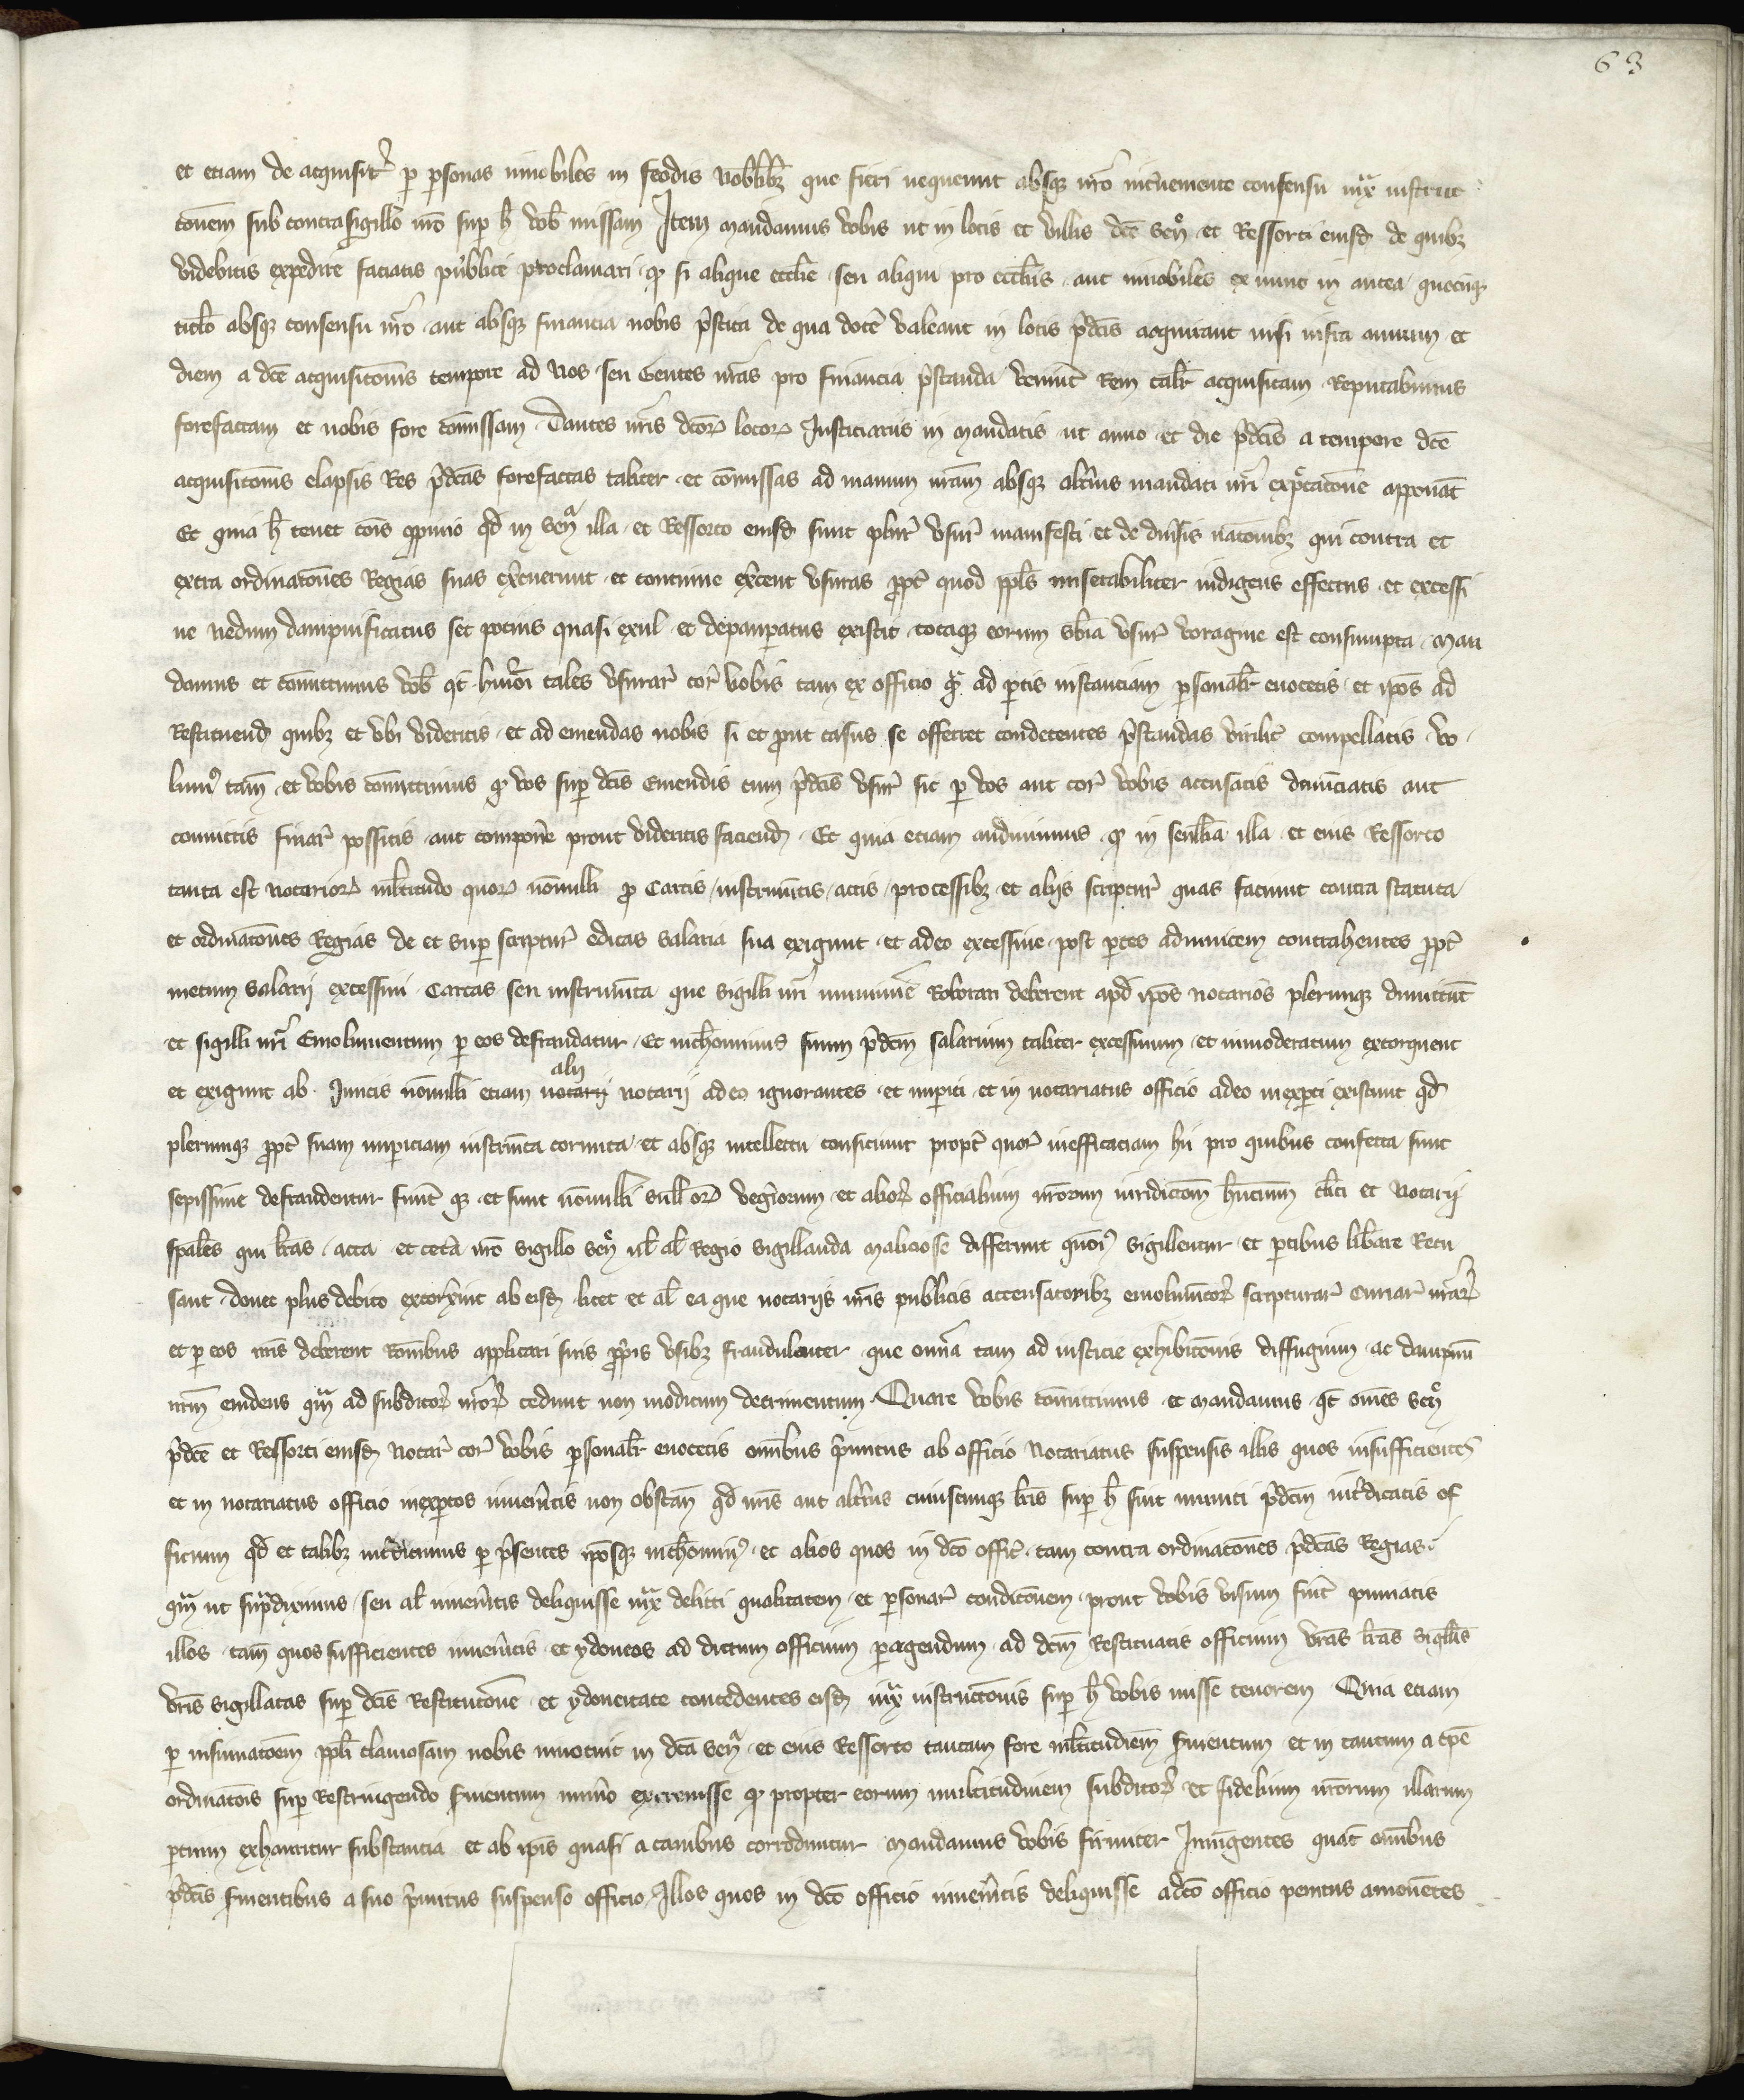 63
et etiam de acquisit' p psonas innobiles in feodis nobilibz que fieri nequeunt absqz nro interveniente consensu iux instruc
cionem sub contrasigillo nro sup h vob missam Item mandamus vobis ut in locis et villis dce sen et Ressorti eiusd de quibz
videbitis expedire faciatis publice proclamari q si alique ecclie seu aliqui pro eccliis aut innobiles ex nunc in antea quocuqz
titlo absqz consensu nro aut absqz financia nobis pstita de qua doce valeant in locis pdcis acquirant nisi infra annum et
diem a dce acquisicionis tempore ad nos seu Gentes nras pro financia pstanda venint Rem talit acquisitam Reputabimus
forefactam et nobis fore comissam Dantes nris dcor locor Iusticiariis in mandatis ut anno et die pdcis a tempore dce
acquisicionis elapsis Res pdcas forefactas taliter et comissas ad manum nram absqz alterius mandati nri expectacione apponat
Et quia h tenet cois oppinio qd in sen illa et Ressorto eiusd sunt plur usur manifesti et de diusis nacionibz qui contra et
extra ordinacones Regias suas excuerunt et continue excent usuras ppt quod ppls miserabiliter indigens effectus et excessi
ue nedum dampnificatus set potius quasi exul et depaupatus existit totaqz eorum sbia usur voragine est consumpta Man
damus et comittimus vob qt huioi tales usurar cor vobis tam ex officio q ad ptis instanciam psonalit euocetis et ipos ad
Restituend quibz et ubi videritis et ad emendas nobis si et prout casus se offerret condecentes pstandas virilit compellatis Vo
lum tam et vobis comittimus q vos sup dcis Emendis cum pdcis usur sic p vos aut cor vobis accusatis denunciatis aut
conuictis finar possitis aut componere prout videritis faciend Et quia etiam audiuimus q in senllia illa et eius Ressorto
tanta est notarior mltitudo quor nonnulli p Cartis instrumtis actis processibz et aliis scriptur quas faciunt contra statuta
et ordinacones Regias de et sup scriptur edicas salaria sua exigunt et adeo excessiue post ptes adinuicem contrahentes ppt
metum salarii excessiui Cartas seu instrumta que sigilli nri munimie Roborari deberent apd ipos notarios plerumqz dimittut
et sigilli nri Emolumentum p eos defraudatur Et nichominus suum pdcm salarium taliter excessiuum et inmoderatum extorquent
et exigunt ab inuitis nonnulli etiam notarii alii notarii adeo ignorantes et impiti et in notariatus officio adeo inexpti existunt qd
plerumqz ppt suam impiciam instrumta corrupta et absqz intellectu conficiunt propt quor inefficaciam hii pro quibus confecta sunt
sepissime defraudentur sunt qz et sunt nonnulli sull or vegiorum et alior officialium nrorum iuridicom hncium clici et Notarii
spales qui lras acta et ceta nro sigillo sen ul al Regio sigillanda maliciose differunt quoi sigillentur et ptibus librare Recu
sant donec plus debito extorxint ab eisd licet et al ea que notariis nris publicis accensatoribz emolumtor scripturar Curiar nrar
et p eos nris deberent Ronibus applicari suis ppis usibz fraudulenter que omia tam ad iusticie exhibicionis diffugium ac dampnu
nrm euidens qm ad subditor nror cedunt non modicum detrimentum Quare vobis comittimus et mandamus qt omes sen
pdce et Ressorti eiusd Notar cor vobis psonalit euocetis omibus pmitus ab officio Notariatus suspensis illis quos insufficientes
et in notariatus officio inexptos inueneritis non obstan qd nris aut altius cuiuscumqz lris sup h sint muniti pdcm interdicatis of
ficium qd et talibz interdicimus p psentes iposqz nichomin et alios quos in dco offic tam contra ordinacones pdcas Regias
qm ut supdiximus seu al inueneritis deliquisse iux delicti qualitatem et psonar condicionem prout vobis visum fuit puniatis
illos tam quos sufficientes inueneritis et ydoneos ad dictum officium pagendum ad dcm Restituatis officium vras lras sigillis
vris sigillatas sup dcis Restitucione et ydoneitate concedentes eisd iux instructionis sup h vobis misse tenorem Quia etiam
p insinuacoem ppli clamosam nobis innotuit in dca sen et eius Ressorto tantam fore mltitudiem seruientum et in tantum a tpe
ordinacois sup Restringendo seruientum numo excreuisse q propter eorum multitudinem subditor et fidelium nrorum illarum
ptium exhauritur substancia et ab ipis quasi a canibus corroduntur Mandamus vobis firmiter Iniungentes quat omibus
pdcis seruientibus a suo pmitus suspenso officio Illos quos in dco officio inueneritis deliquisse a dco officio penitus amouentes